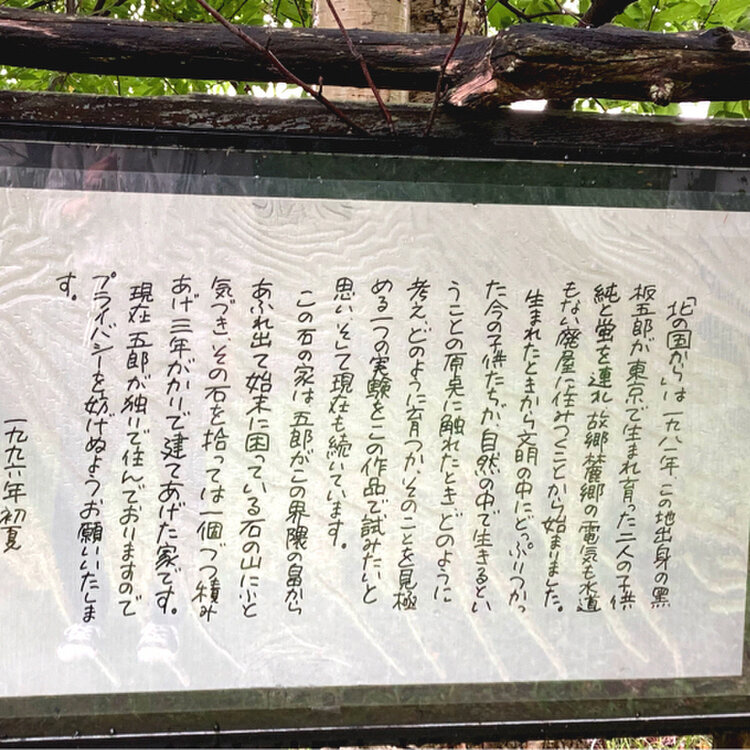 「北の国から」は一九八一年、この地出身の黒
板五郎が東京で生まれ育った二人の子供
純と蛍を連れ故郷麓郷の電気も水道
もない廃屋に住みつくことから始まりました。
生まれたときから文明の中にどっぷりつかっ
た今の子供たちが、自然の中で生きるとい
うことの原点に触れたとき、どのように
考え、どのように育つか、そのことを見極
める一つの実験をこの作品で試みたいと
思い、そして現在も続いています。
この石の家は五郎がこの界隈の畠から
あふれ出て始末に困っている石の山にふと
気づき、その石を拾っては一個づつ積み
あげ三年がかりで建てあげた家です。
現在五郎が独いで住んでおりますので
プライバシーを妨げぬようお願いいたしま
す。
一九九六年 初夏